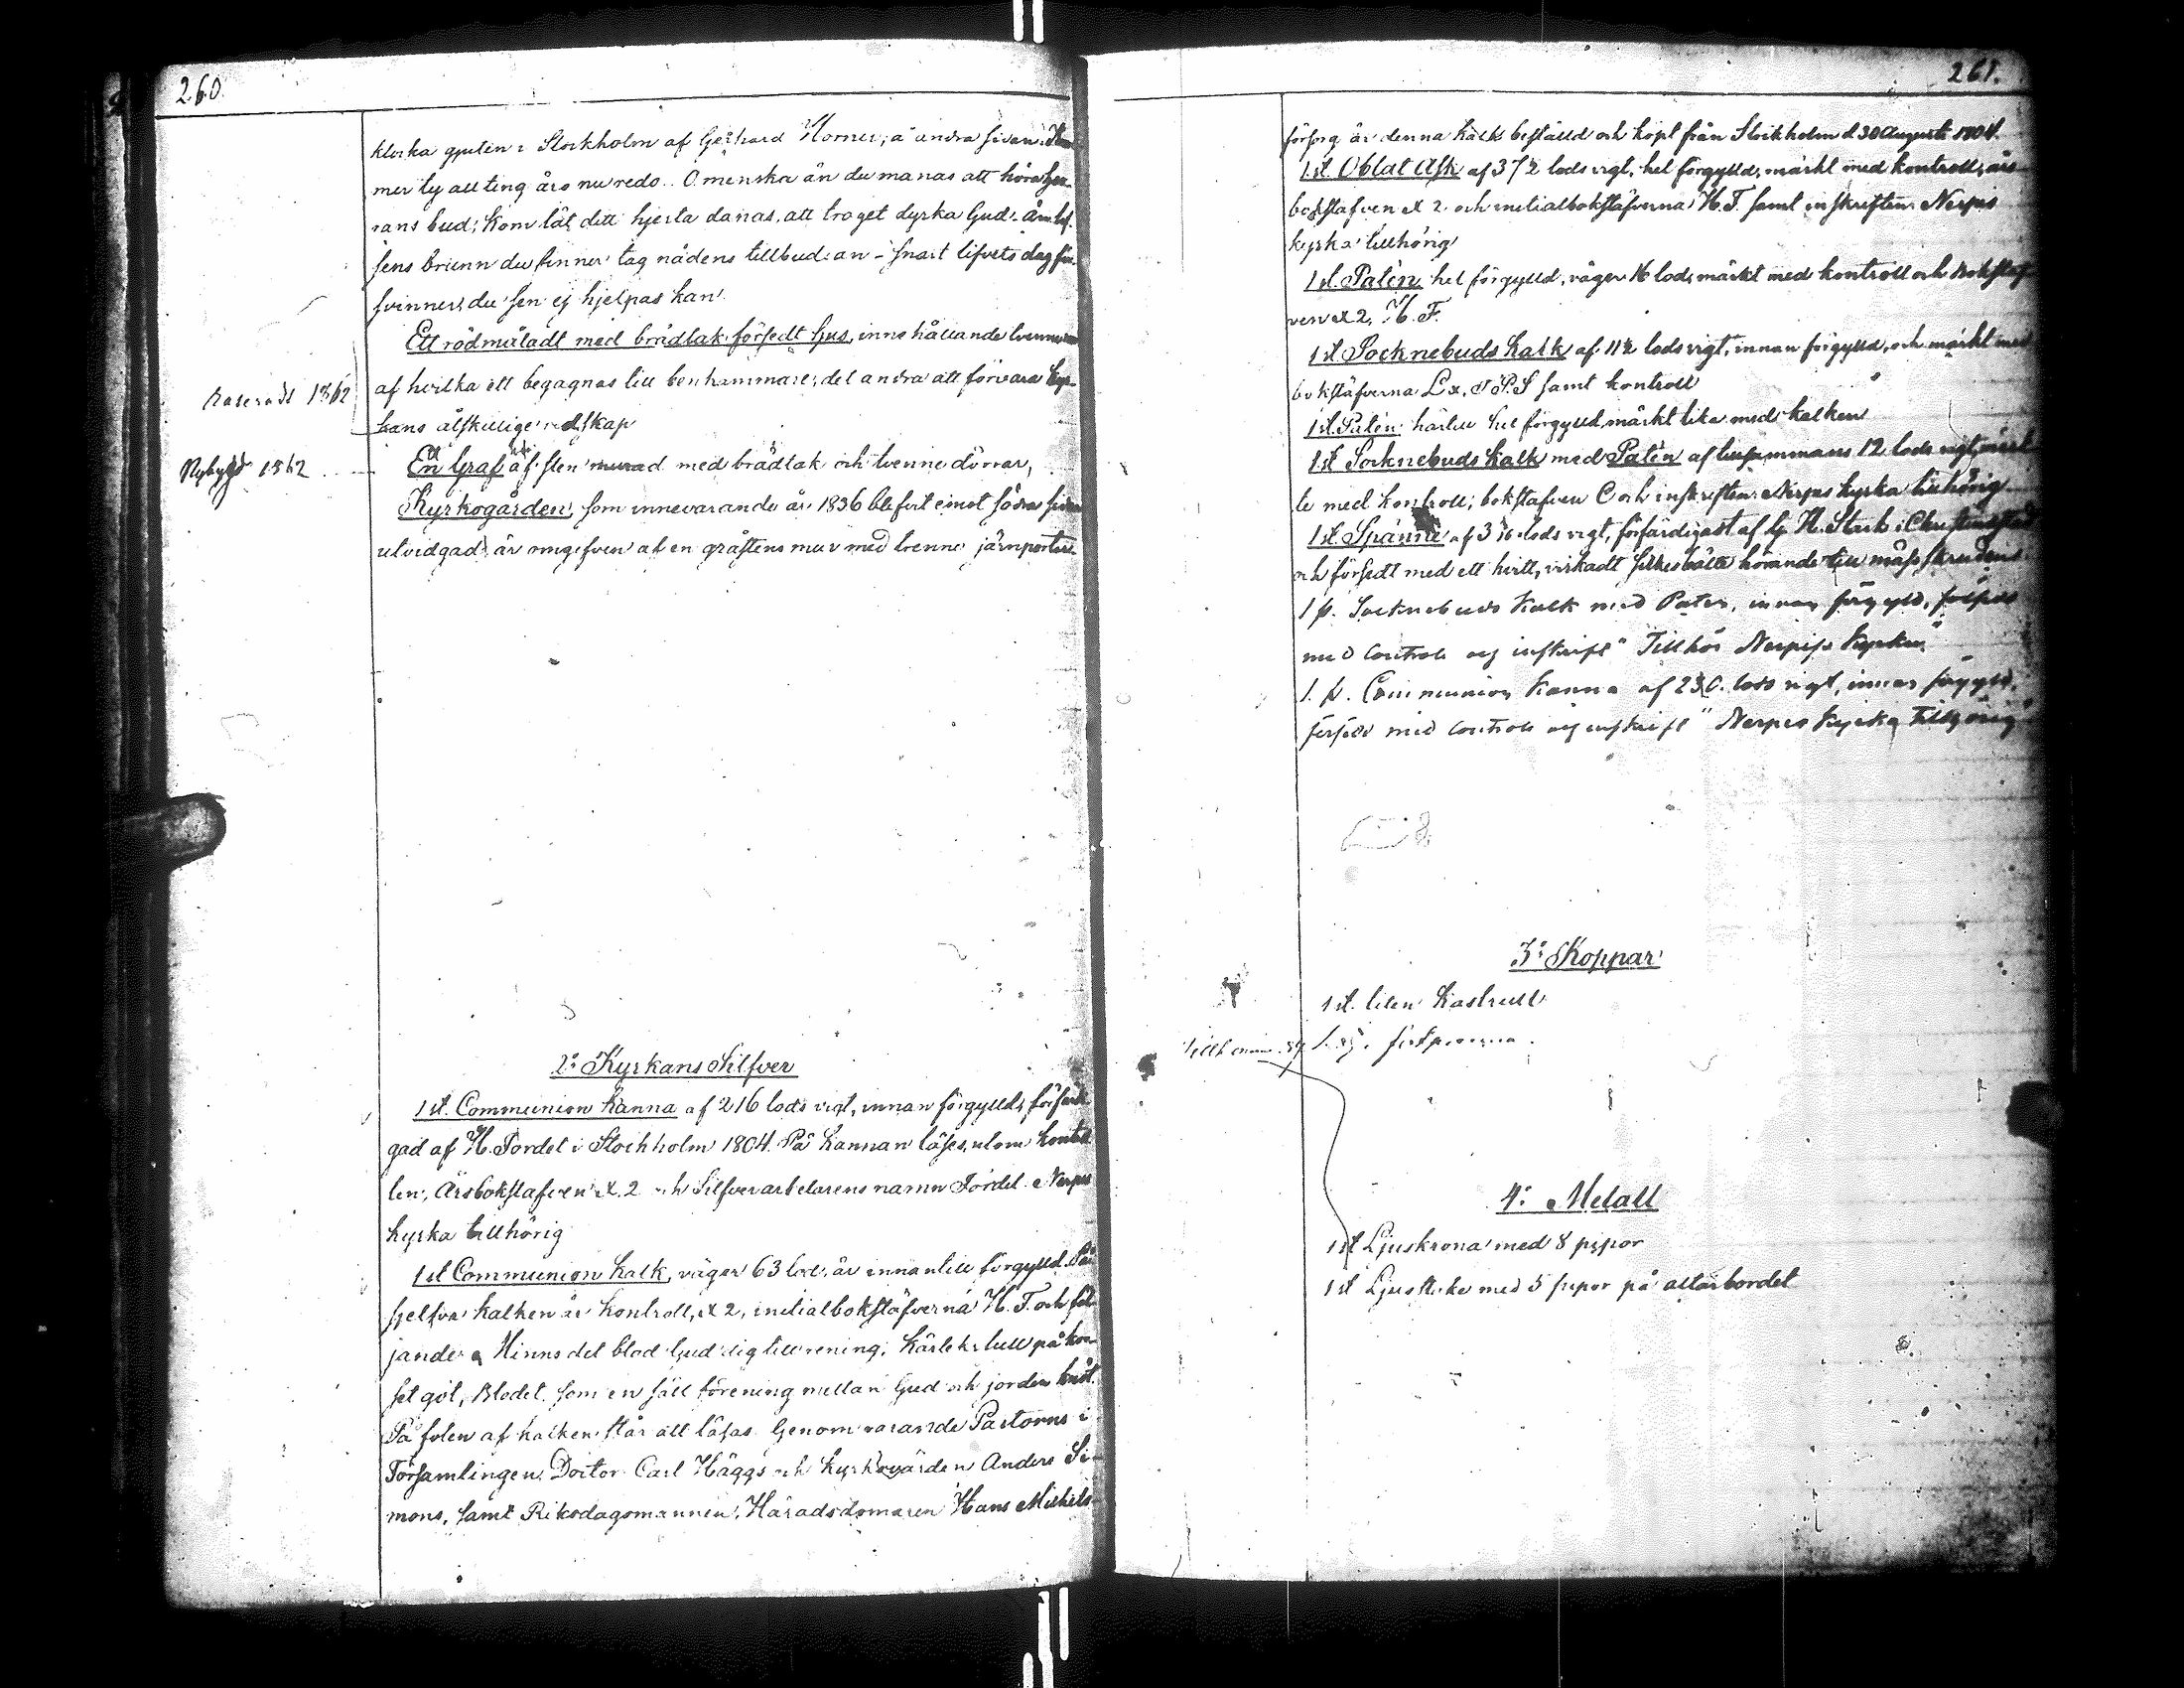 260
klocka gjuten i Stockholm af Gerhard Horner; å andra sidan: Kom-
mer ty all ting äro nu redo. O menska än du manas att höra Her-
rans bud; Kom låt ditt hjerta danas, att troget dyrka Gud;
sens brunn du finner tag nådens tillbud an – snart lifvets dag för-
svinner, du sen ej hjelpas kan.
Ett rödmåladt med brädtak försedt hus, inne hållande tvenne rum
Raseradt 1862
af hvilka ett begagnas till benkammare; det andra att förvara kyr-
kans åtskillige redskap
Nybyggd 1862
En Graf af sten murad med brädtak och tvenne dörrar,
Kyrkogården, som innevarande år 1836 blifvit emot södra sidan
utvidgad, är omgifven af en gråstens mur med trenne järnportar
2:o Kyrkans Silfver
1 st. Communion Kanna af 216 lods vigt, innan förgylld, förfärdi-
gad af H. Fordel i Stockholm 1804. På kannan läses, utom kontrol-
len, Årsbokstafven X. 2 och Silfverarbetarens namn Fordel. Nerpes
kyrka tillhörig
1 st Communion Kalk, väger 63 lod, är innantill förgylld. På
sjelfva kalken är kontroll, X 2, initialbokstäfverna H. F. och föl-
jande: Minns det blod Gud dig till rening, Kärleksfull på kor-
set göt, Blodet som en säll förening mellan Gud och jorden knöt.
På foten af kalken står att läsas Genom varande Pastorns i
Församlingen Doctor Carl Häggs och Kyrkovärden Anders Si-
mons, samt Riksdagsmannen, Häradsdomaren Hans Michels-
261.
försorg är denna kalk beställd och köpt från Stockholm d 30 Augusti 1804.
1 st. Oblat Ask af 37½ lods vigt, hel förgylld, märkt med kontroll, års-
bokstafven X 2. och initialbokstäfverna H. F. samt inskriften Nerpes
kyrka tillhörig
1 st. Patén, hel förgylld, väger 16 lod, märkt med kontroll och bokstaf-
ven X 2, H. F.
1 st Socknebuds Kalk af 11½ lods vigt, innan förgylld, och märkt med
bokstäfverna L samt kontroll
1 st. Patén härtill hel förgylld märkt lika med kalken
1 st Socknebuds Kalk med Patén af tillsammans 12 lods vigt, märk-
te med kontroll, bokstafven C och inskriften Nerpes kyrka tillhörig
1 st. Spänne af lods vigt, förfärdigadt af H. Stark i Christinestad
och försedt med ett hvitt, virkadt silkesbälte hörande till mässskruden
1 st. Socknebuds Kalk med Paten, innan förgyld, försedd
med Controll och inskrift "Tillhör Nerpes Kyrka"
1. st. Communion Kanna af 230. lods vigt, innan förgyld,
försedd med Controll och inskrift "Nerpes Kyrka Tillhörig"
3:o Koppar
1 st. liten Kastrull
4:o Metall
1 st Ljuskrona med 8 pipor
1 st Ljusstake med 5 pipor på altarbordet